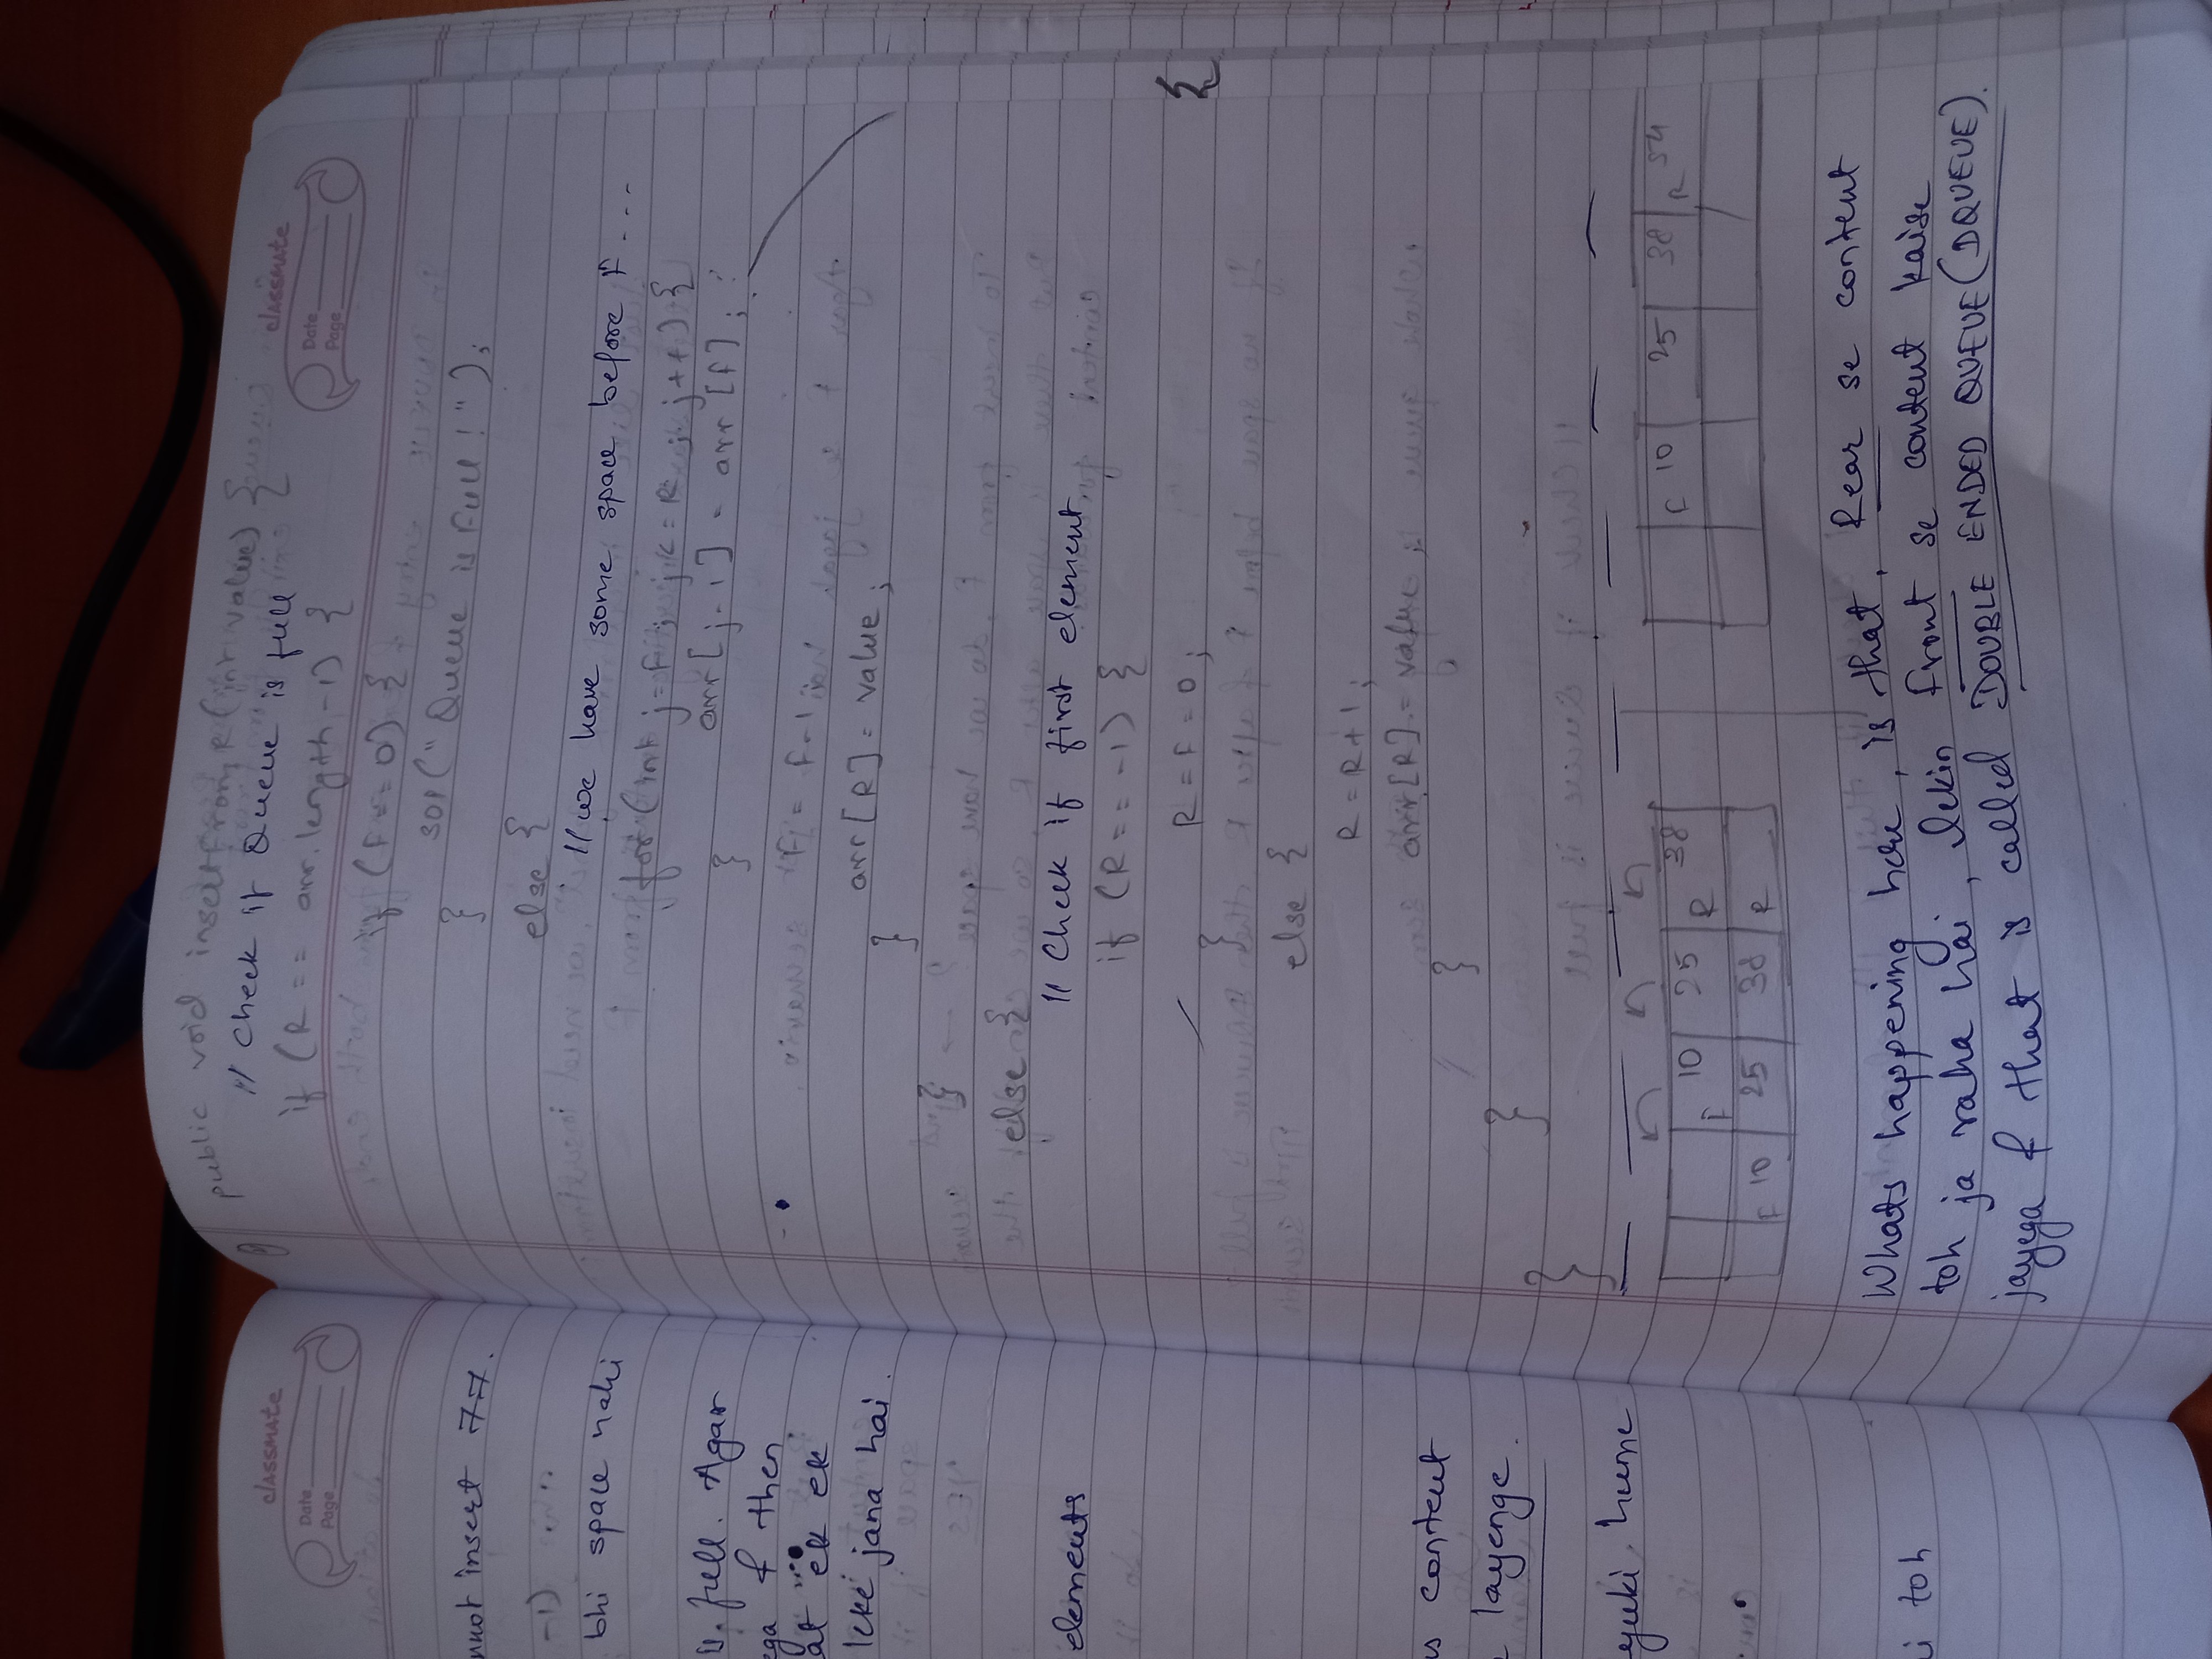 classmate
Date
Page
nnot insert 77.
-1)
bhi space nahi
full. Agar
ega & then
at ek ek
leke jana hai.
elements
s content
layenge.
yuki hume
i toh
public void insertFromR(int value) {
// Check if Queue is full
classmate
Date
Page
if (R == arr.length-1) {
if (F == 0) {
sop("Queue is Full!");
}
else {
// we have some space before F...
for (int j=F; j<=R; j++) {
arr[j-1] = arr[F];
}
F = F-1
arr[R] = value;
}
}
else {
// Check if first element.
if (R == -1) {
R = F = 0;
}
else {
R = R+1;
arr[R] = value;
}
}
}
F 10 25 R 38
F 10 25 38 R
F 10 25 38 R 54
Whats happening here, is that, Rear se content
toh ja raha hai, lekin front se content kaise
jayega & that is called DOUBLE ENDED QUEUE (DQUEUE).